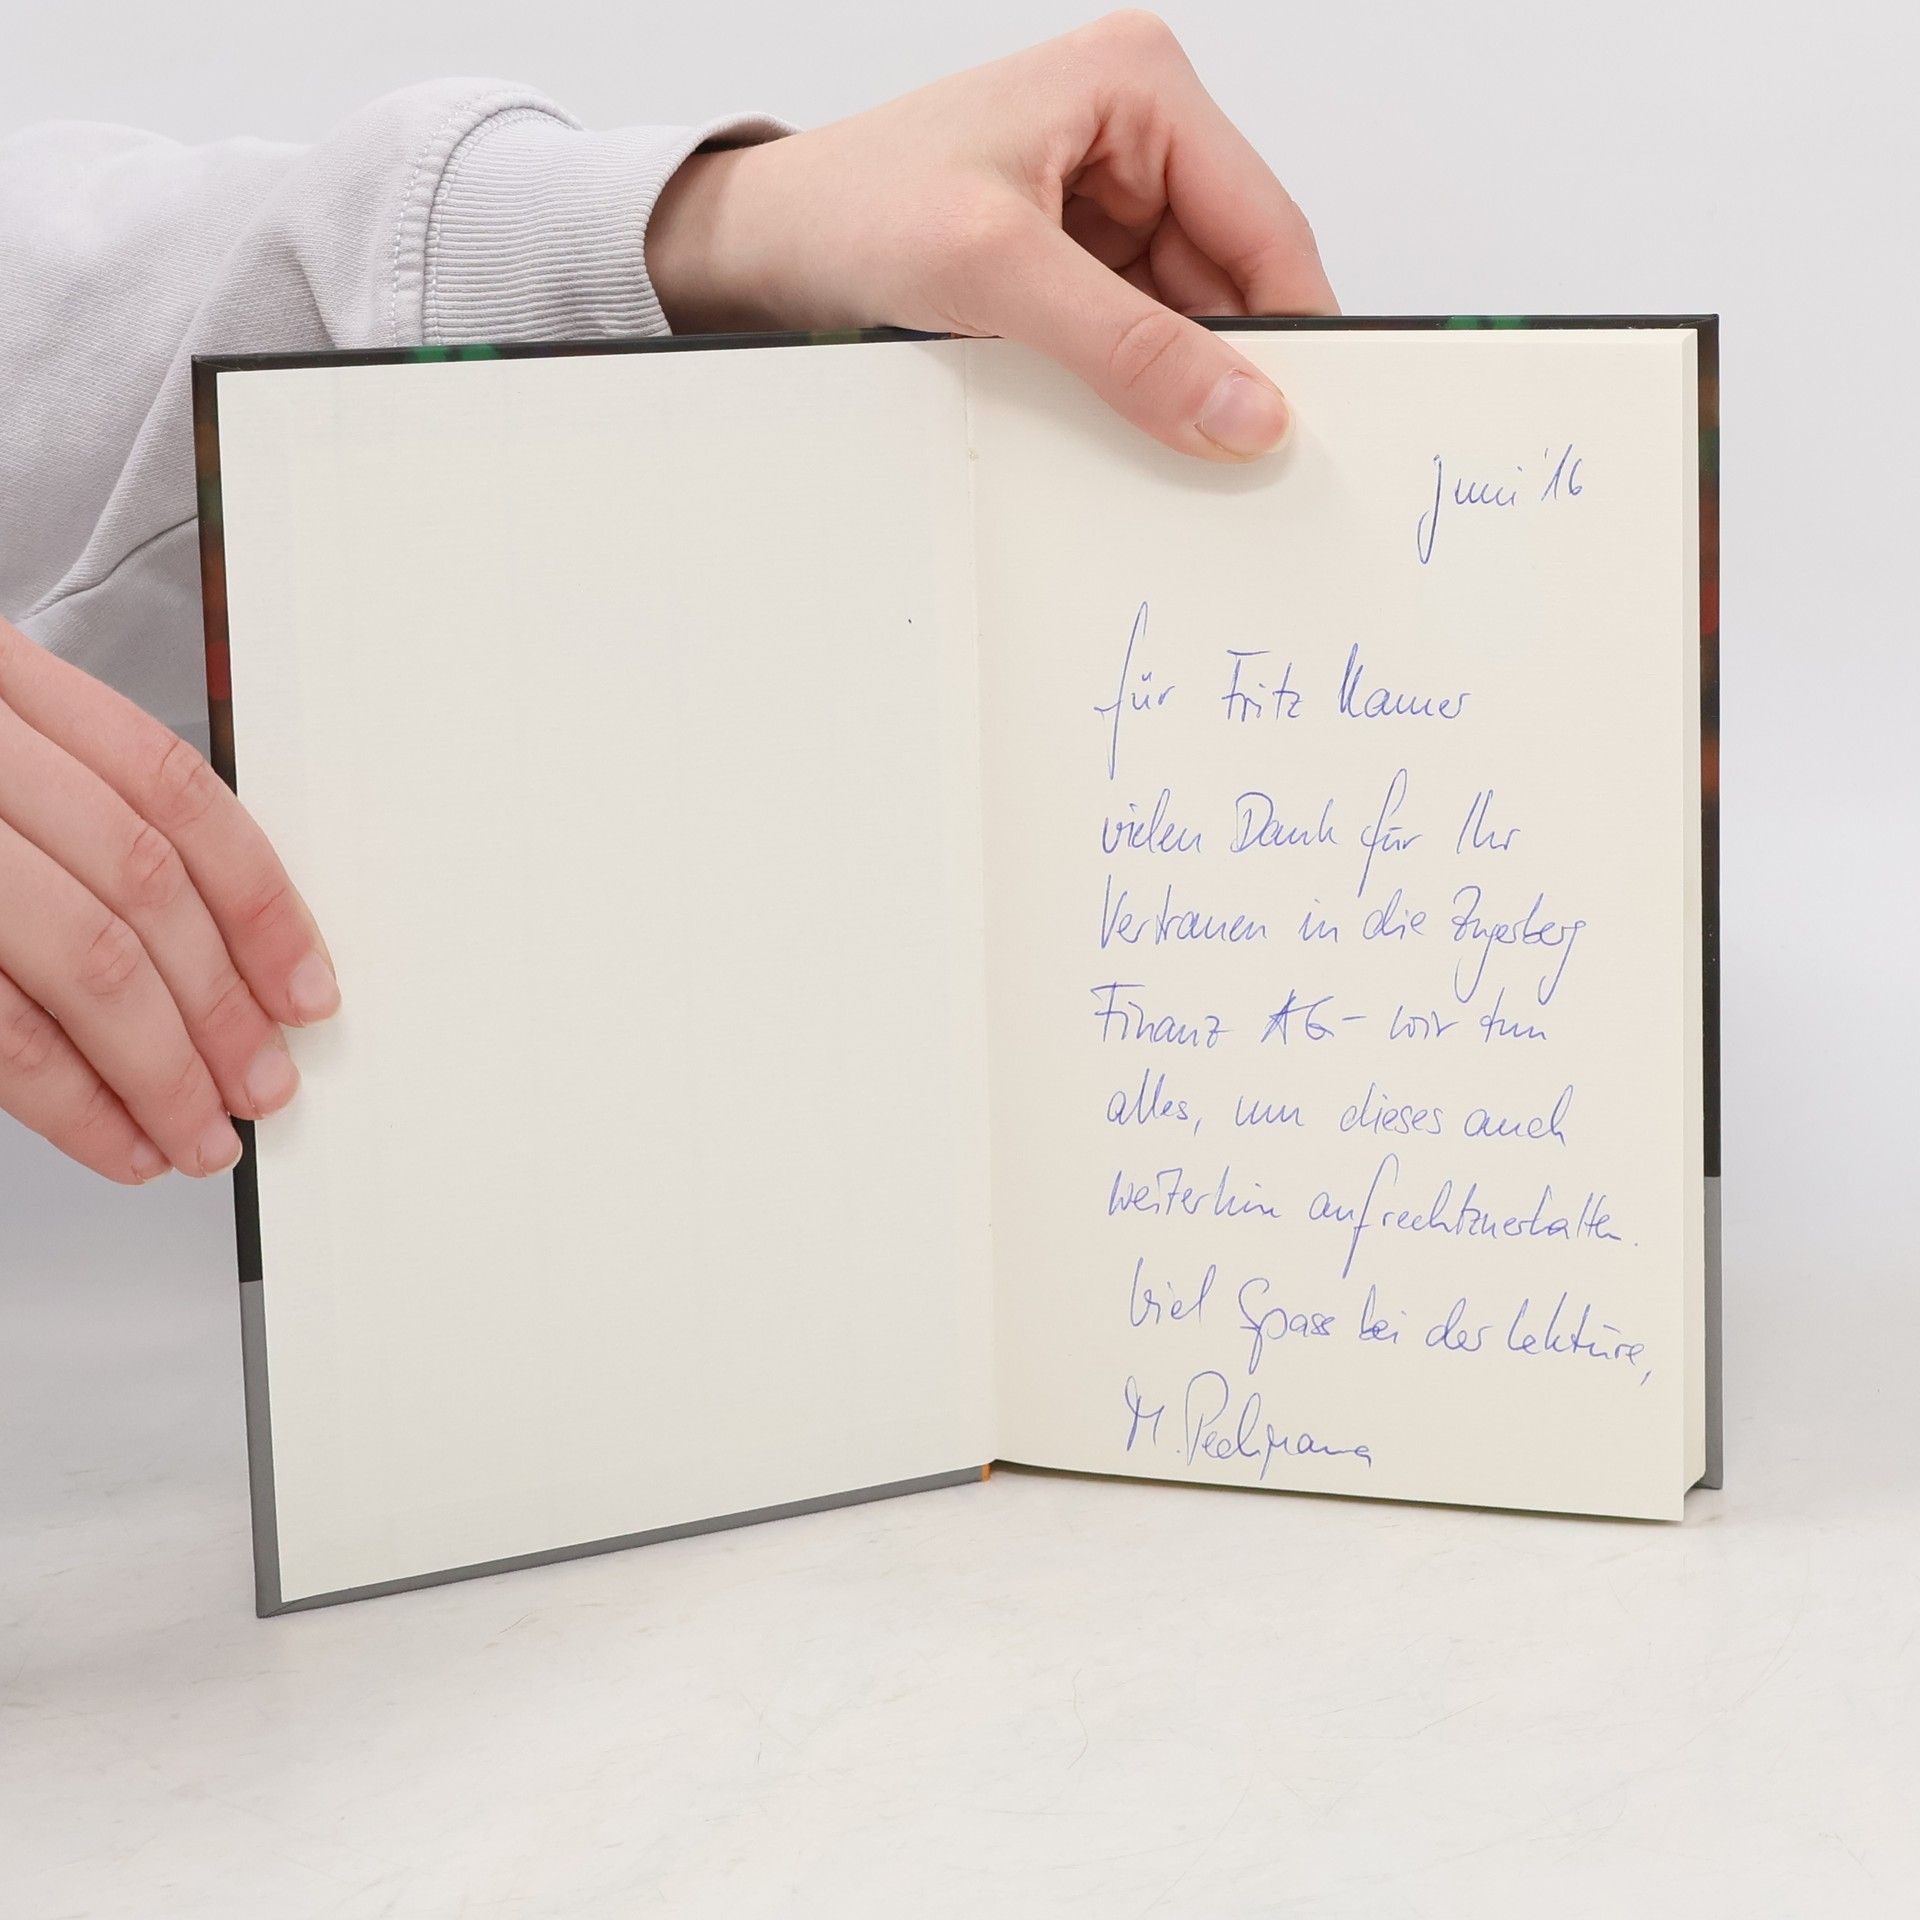 Juni '16
für Fritz
vielen Dank für Ihr
Vertrauen in die Zugerberg
Finanz AG – wir tun
alles, um dieses auch
weiterhin aufrechtzuerhalten.
Viel Spass bei der Lektüre,
M.